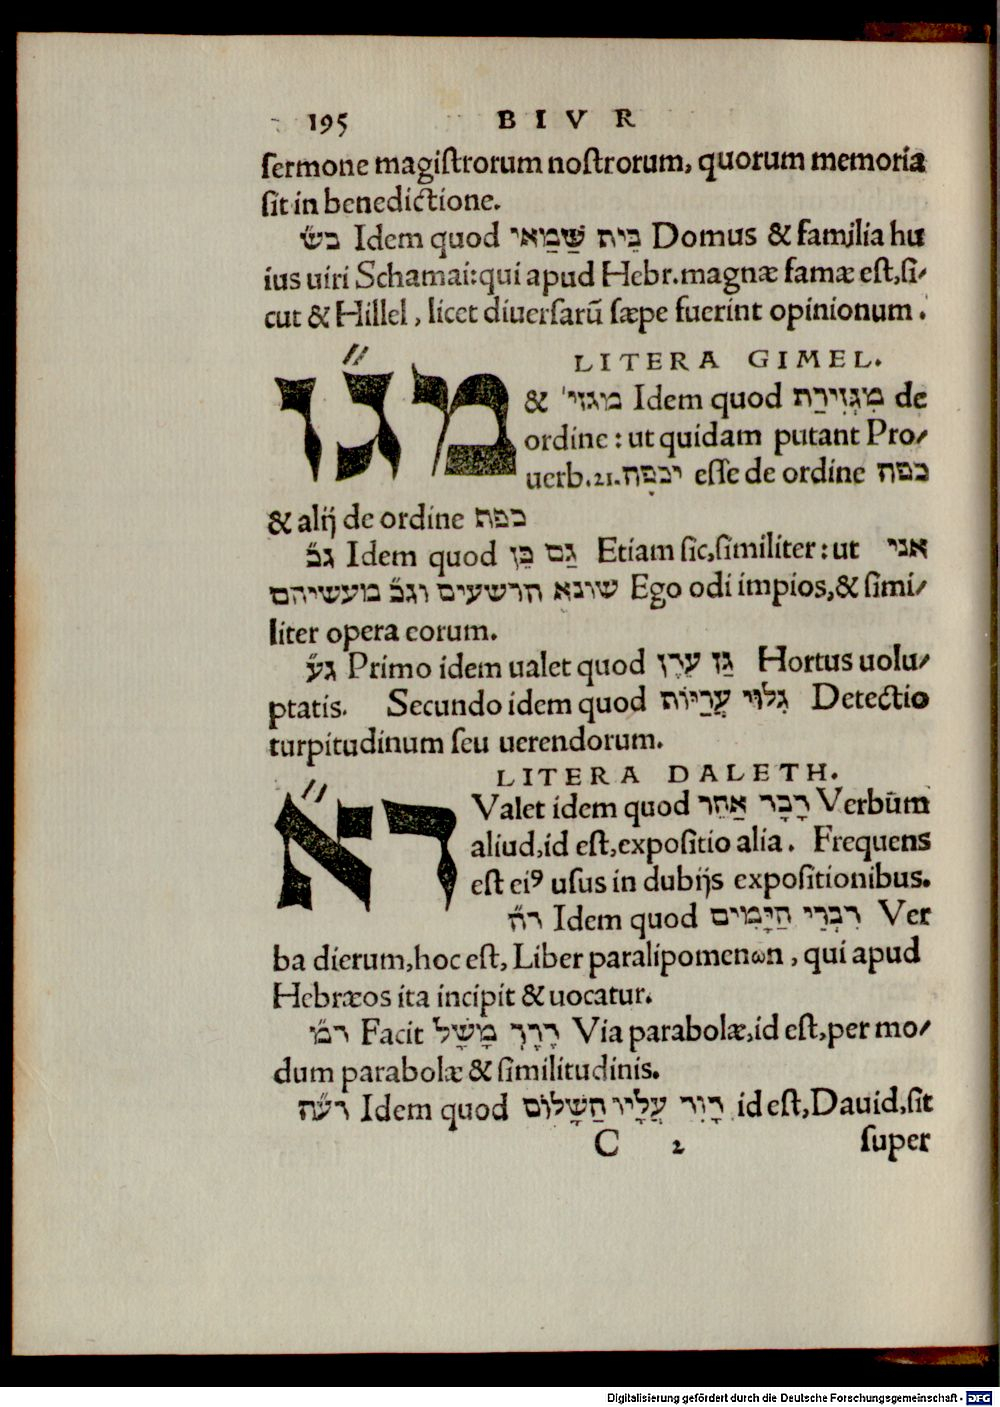 195 BIVR
sermone magistrorum nostrorum, quorum memoria
sit in benedictione.
בש״ Idem quod בֵּית שַׁמַּאי Domus & familia hu
ius uiri Schamai: qui apud Hebr. magnæ famæ est, si-
cut & Hillel, licet diuersarũ sæpe fuerint opinionum.
LITERA GIMEL.
מג״ו & מגזי' Idem quod מִגְזֵירַת de
ordine: ut quidam putant Pro-
uerb. 21. יכפה esse de ordine כפה
& alij de ordine כפת
ג״כ Idem quod גַּם כֵּן Etiam sic, similiter: ut אני
שונא הרשעים וג״כ מעשיהם Ego odi impios, & simi-
liter opera eorum.
ג״ע Primo idem ualet quod גַּן עֵדֶן Hortus uolu-
ptatis. Secundo idem quod גִּלּוּי עֲרָיוֹת Detectio
turpitudinum seu uerendorum.
LITERA DALETH.
ד״א Valet idem quod דָּבָר אַחֵר Verbũm
aliud, id est, expositio alia. Frequens
est eiꝰ usus in dubijs expositionibus.
ד״ה Idem quod דִּבְרֵי הַיָּמִים Ver
ba dierum, hoc est, Liber paralipomenωn, qui apud
Hebræos ita incipit & uocatur.
ד״מ Facit דֶּרֶךְ מָשָׁל Via parabolæ, id est, per mo-
dum parabolæ & similitudinis.
דע״ה Idem quod דָּוִד עָלָיו הַשָּׁלוֹם id est, Dauid, sit
C 2 super
Digitalisierung gefördert durch die Deutsche Forschungsgemeinschaft - DFG